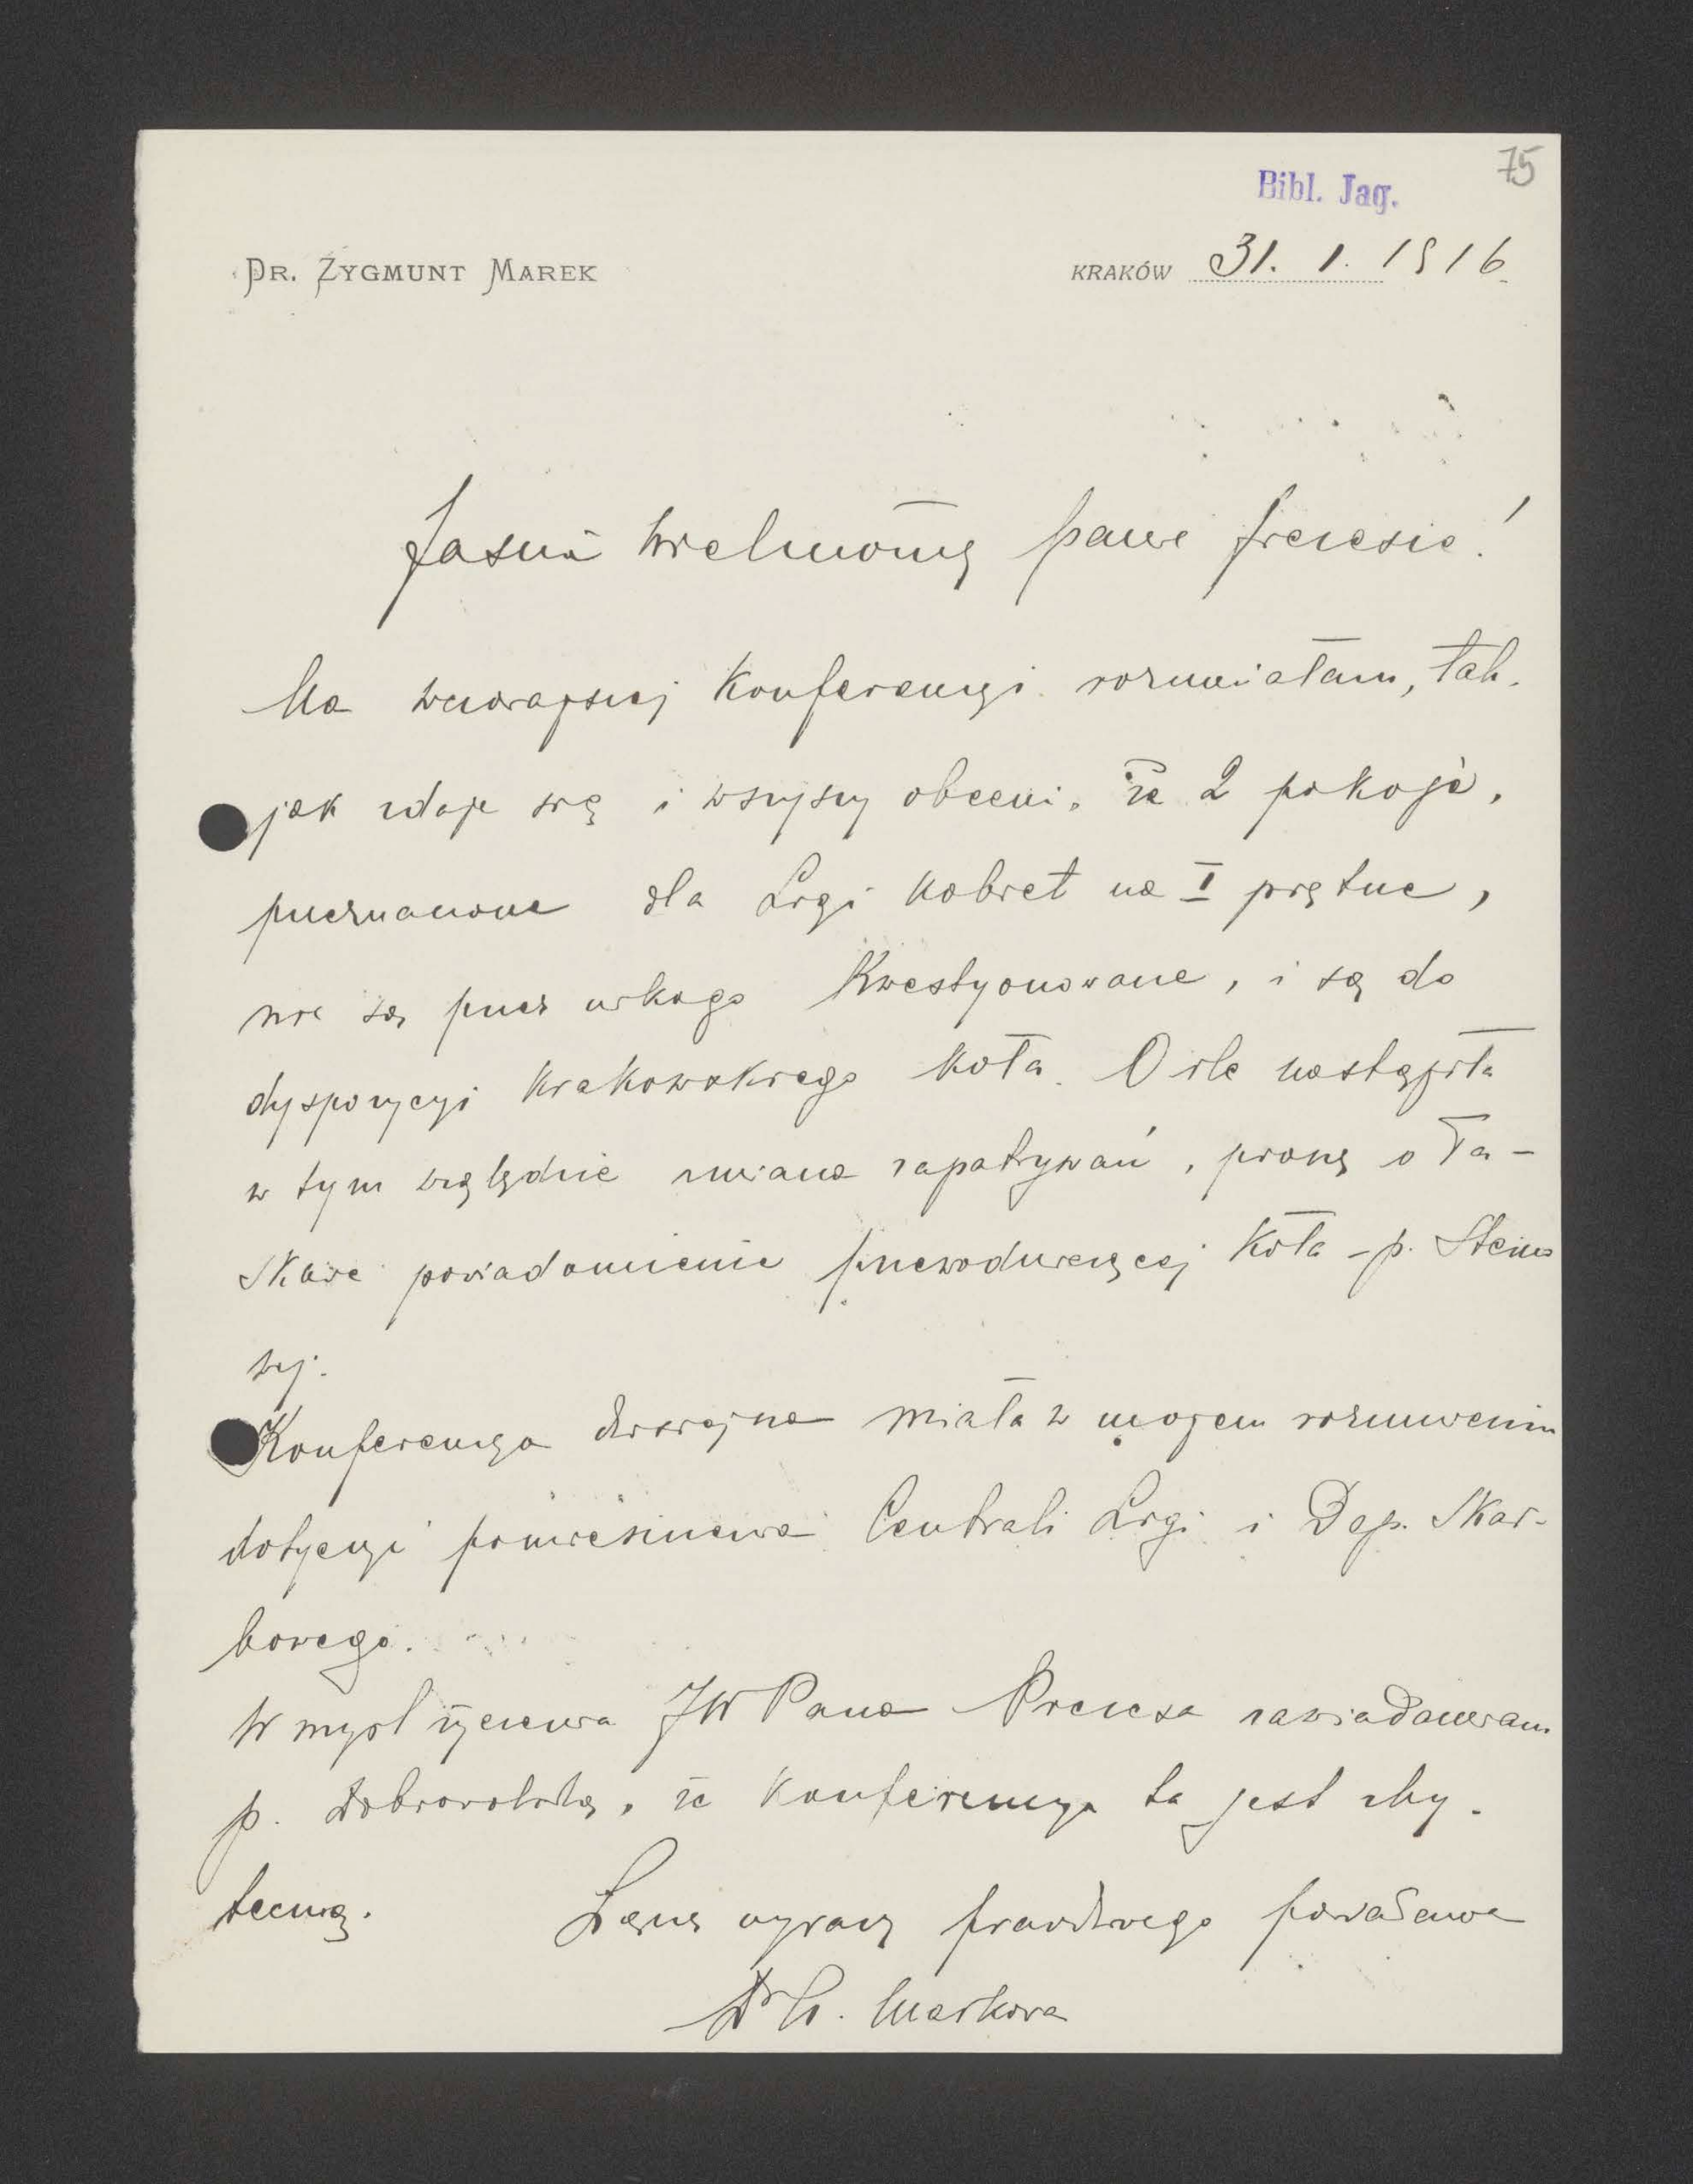 75
Bibl. Jag.
DR. ZYGMUNT MAREK
KRAKÓW 31. 1. 1916.
Jaśnie Wielmożny panie prezesie!
Na wczorajszej Konferencyi rozumiałam, tak
jak zdaje się i wszyscy obecni, że 2 pokoje,
przeznaczone dla Ligi Kobiet na I piętrze,
nie są przez nikogo Kwestyonowane, i są do
dyspozycyi Krakowskiego Koła. O ile nastąpiła
w tym względzie zmiana zapatrywań, proszę o ła-
skawe powiadomienie przewodniczącej Koła - p. Steino
wej.
Konferencya dzisiejsza miała w mojem rozumieniu
dotyczyć pomieszczenia Centrali Ligi i Dep. Skar-
bowego.
W myśl życzenia JW Pana Prezesa zawiadamiam
p. Dobrowolską, że Konferencya ta jest zby-
teczną.
Łączę wyrazy prawdziwego poważania
Dr Markowa